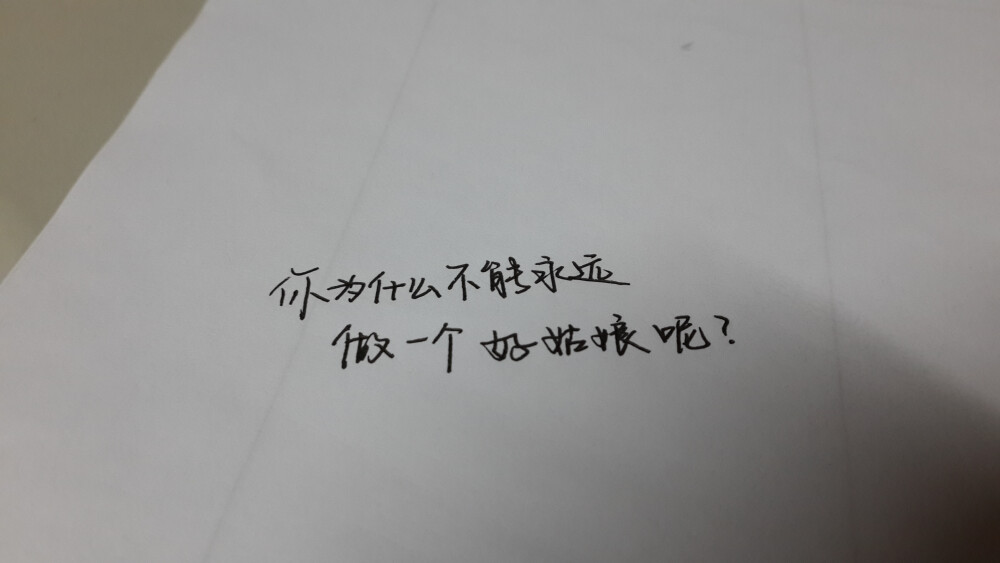 你为什么不能永远
做一个好姑娘呢?